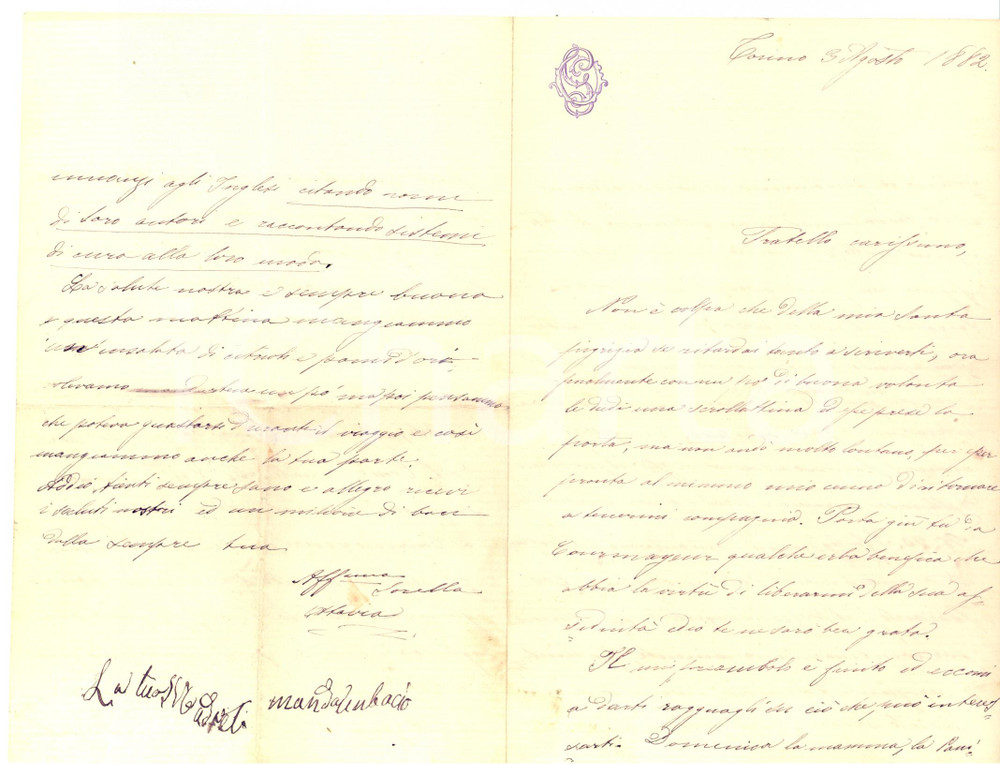 Torino 3 Agosto 1882.
Fratello carissimo,
Non è colpa che della mia santa
pigrizia se ritardai tanto a scriverti, ora
finalmente con un po' di buona volontà
le diedi una scrollattina ed essa prese la
porta, ma non andò molto lontano, per esser
pronta al minimo mio cenno di ritornare
a tenermi compagnia. Porta giù tu da
Courmayeur qualche erba benefica che
abbia la virtù di liberarmi della sua as-
siduità ed io te ne sarò ben grata.
Il mio preambolo è finito ed eccomi
a darti ragguagli di ciò che può interes-
sarti. Domenica la mamma, la
innanzi agli Inglesi citando nomi
di loro autori e raccontando sistemi
di cura alla loro moda.
La salute nostra è sempre buona
e questa mattina mangiammo
un'insalata di citrioli e pomidori.
Volevamo dartene un pò ma poi pensammo
che poteva guastarsi durante il viaggio e così
mangiammo anche la tua parte.
Addio, sianti sempre sano e allegro ricevi
i saluti nostri ed un milione di baci
dalla sempre tua
Affma Sorella
Ottavia
La tua Madre ti manda un bacio